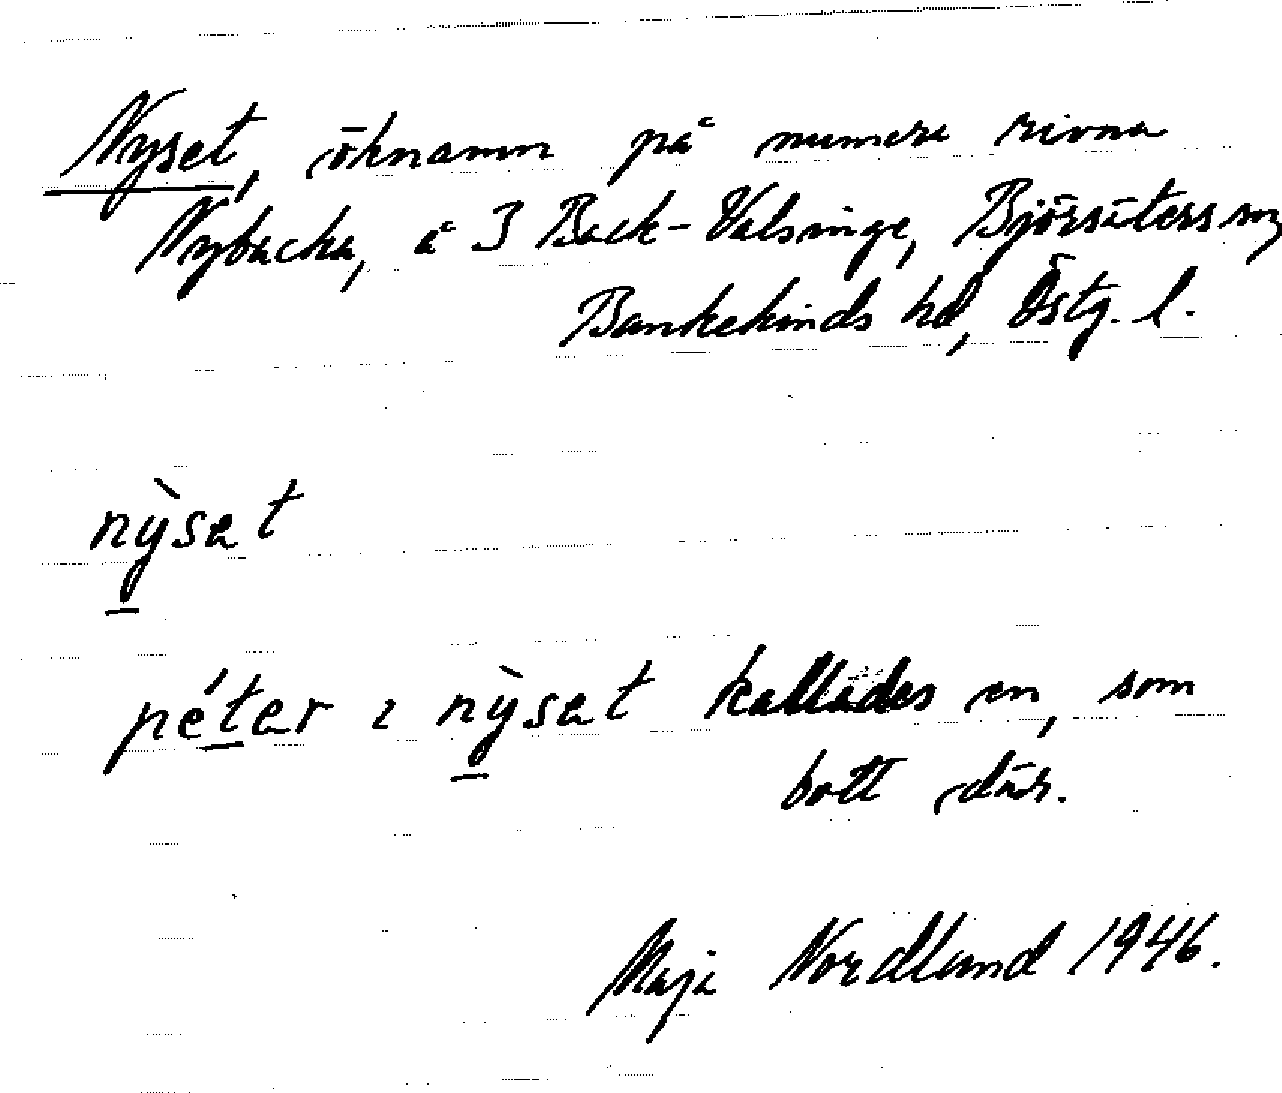 Nyset, öknamn på numera rivna
Nybacka, å 3 Back-Valsinge, Björsäters sn,
Bankekinds hd, Östg. l.
nỳsat
péter i nỳsat kallades en, som
bott där.
Maja Nordlund 1946.